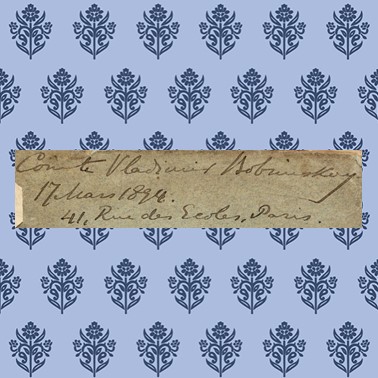 Comte Vladimir Bobrinskoy
17 Mars 1894.
41, Rue des Ecoles, Paris.